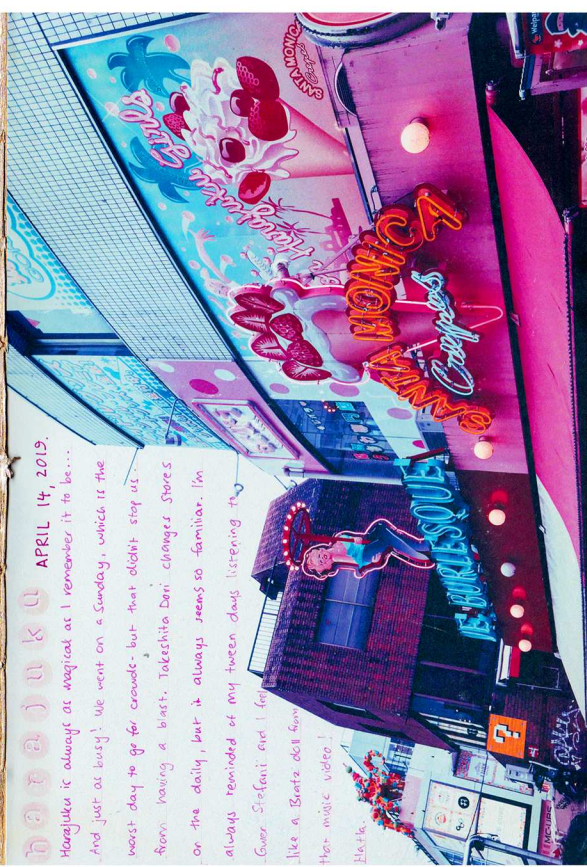 harajuku APRIL 14, 2019.
Harajuku is always as magical as I remember it to be...
And just as busy! We went on a Sunday, which is the
worst day to go for crowds- but that didn't stop us
from having a blast. Takeshita Dori changes stores
on the daily, but it always seems so familiar. I'm
always reminded of my tween days listening to
Gwen Stefani and I feel
like a Bratz doll from
their music video!
Haha.
Harajuku Girl's
SANTA MONICA
Crepes
SANTA MONICA
Crepes
LE BURLESQUE
?